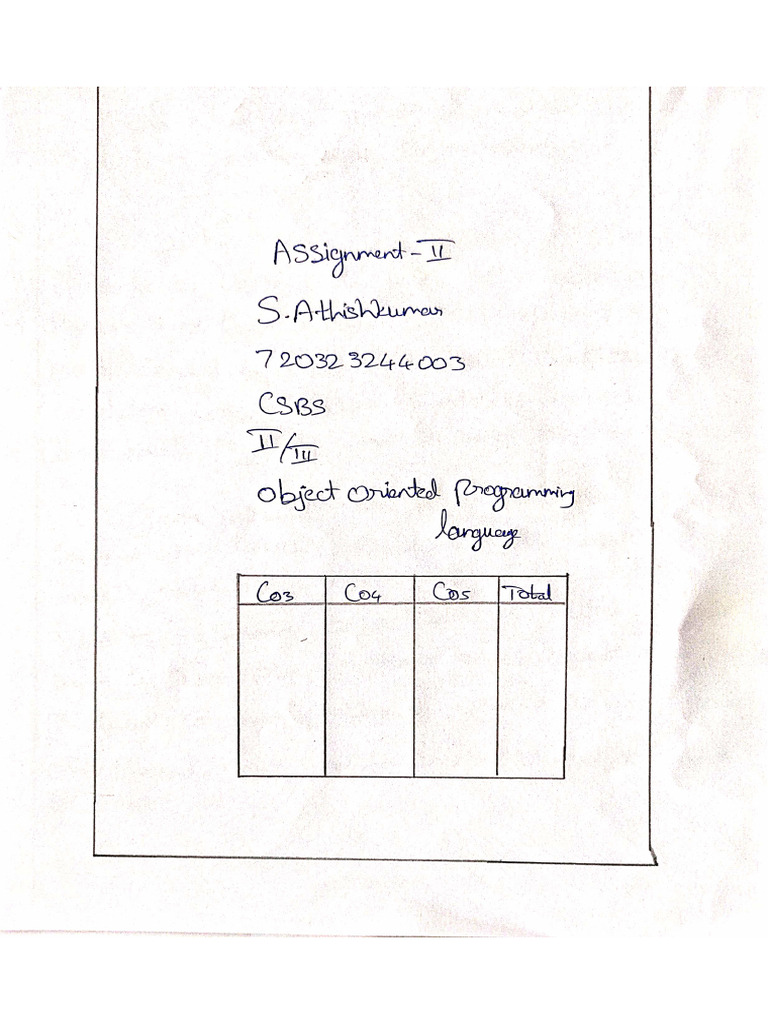 Assignment - II
S. Athishkumar
720323244003
CSBS
II/III
Object Oriented Programming
language
CO3 CO4 CO5 Total